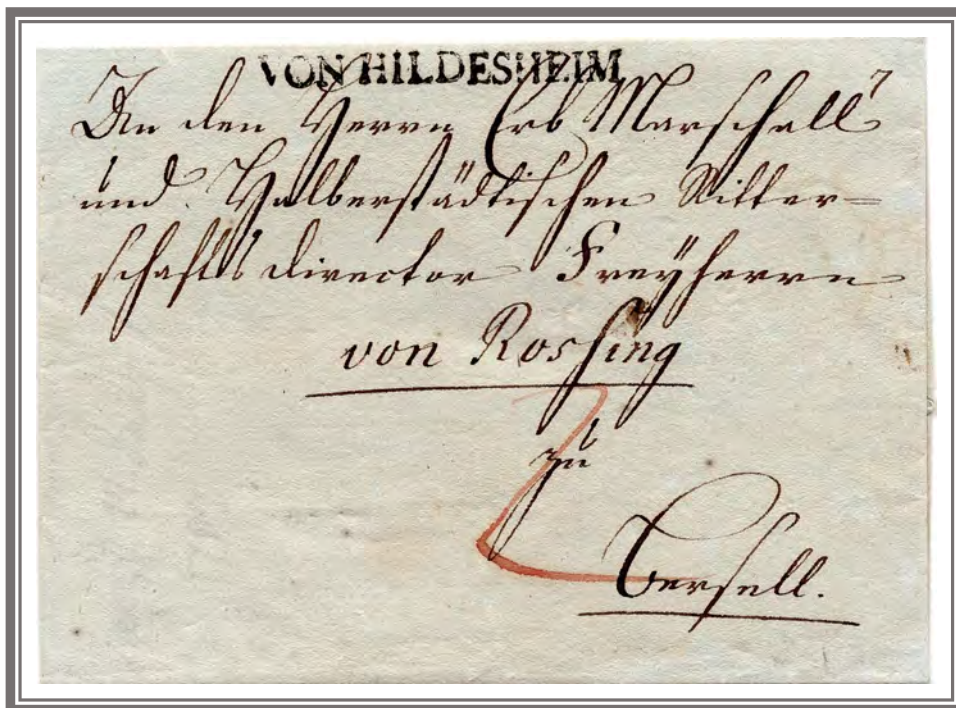 VON HILDESHEIM
An den Herrn Erb Marschall
und Halberstädtischen Ritter=
schafts director Freyherrn
von Rössing
zu
Berssell.